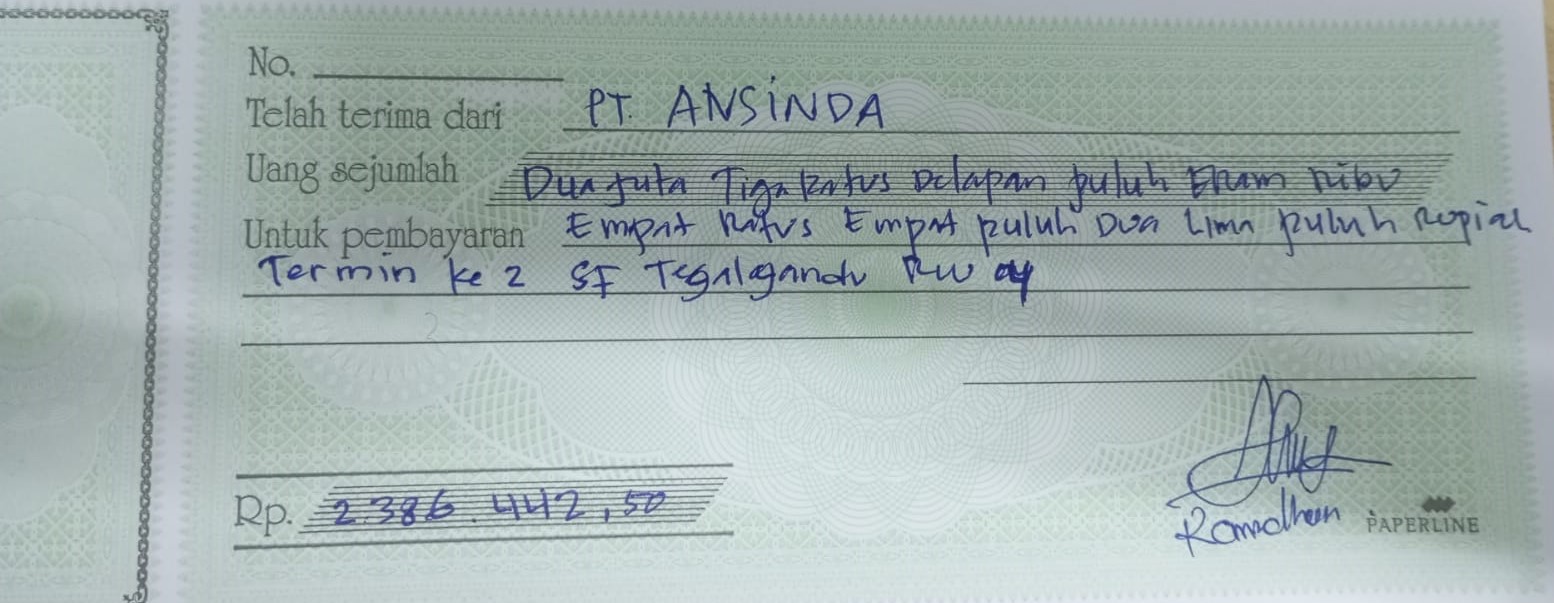 No.
Telah terima dari PT. ANSINDA
Uang sejumlah Dua juta Tiga Ratus Delapan puluh Enam ribu
Untuk pembayaran Empat Ratus Empat puluh Dua Lima puluh Rupiah
Termin ke 2 SF Tegalgandu RW 04
2
Rp. 2.386.442,50
Ramadhan
PAPERLINE